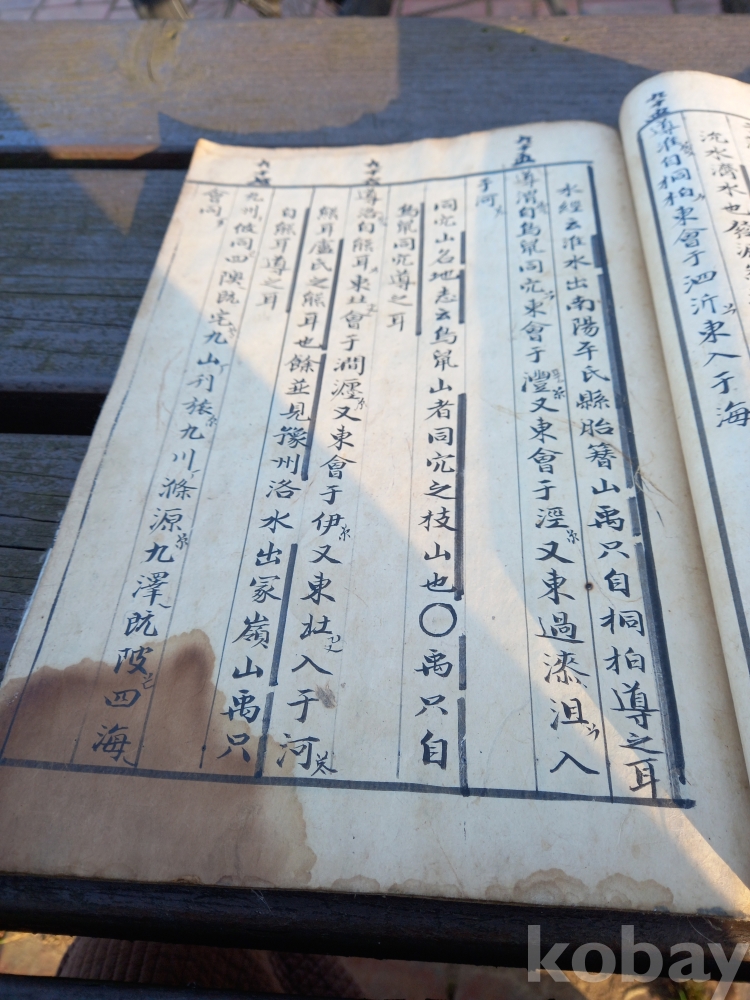 沇水濟水也
導淮自桐柏東會于泗沂東入于海
水經云淮水出南陽平氏縣胎簪山禹只自桐柏導之耳
導渭自鳥鼠同穴東會于灃又東會于涇又東過漆沮入
于河
同穴山名地志云鳥鼠山者同穴之枝山也○禹只自
鳥鼠同穴導之耳
導洛自熊耳東北會于澗瀍又東會于伊又東北入于河
熊耳盧氏之熊耳也餘並見豫州洛水出冢嶺山禹只
自熊耳導之耳
九州攸同四隩既宅九山刊旅九川滌源九澤既陂四海
會同
kobay